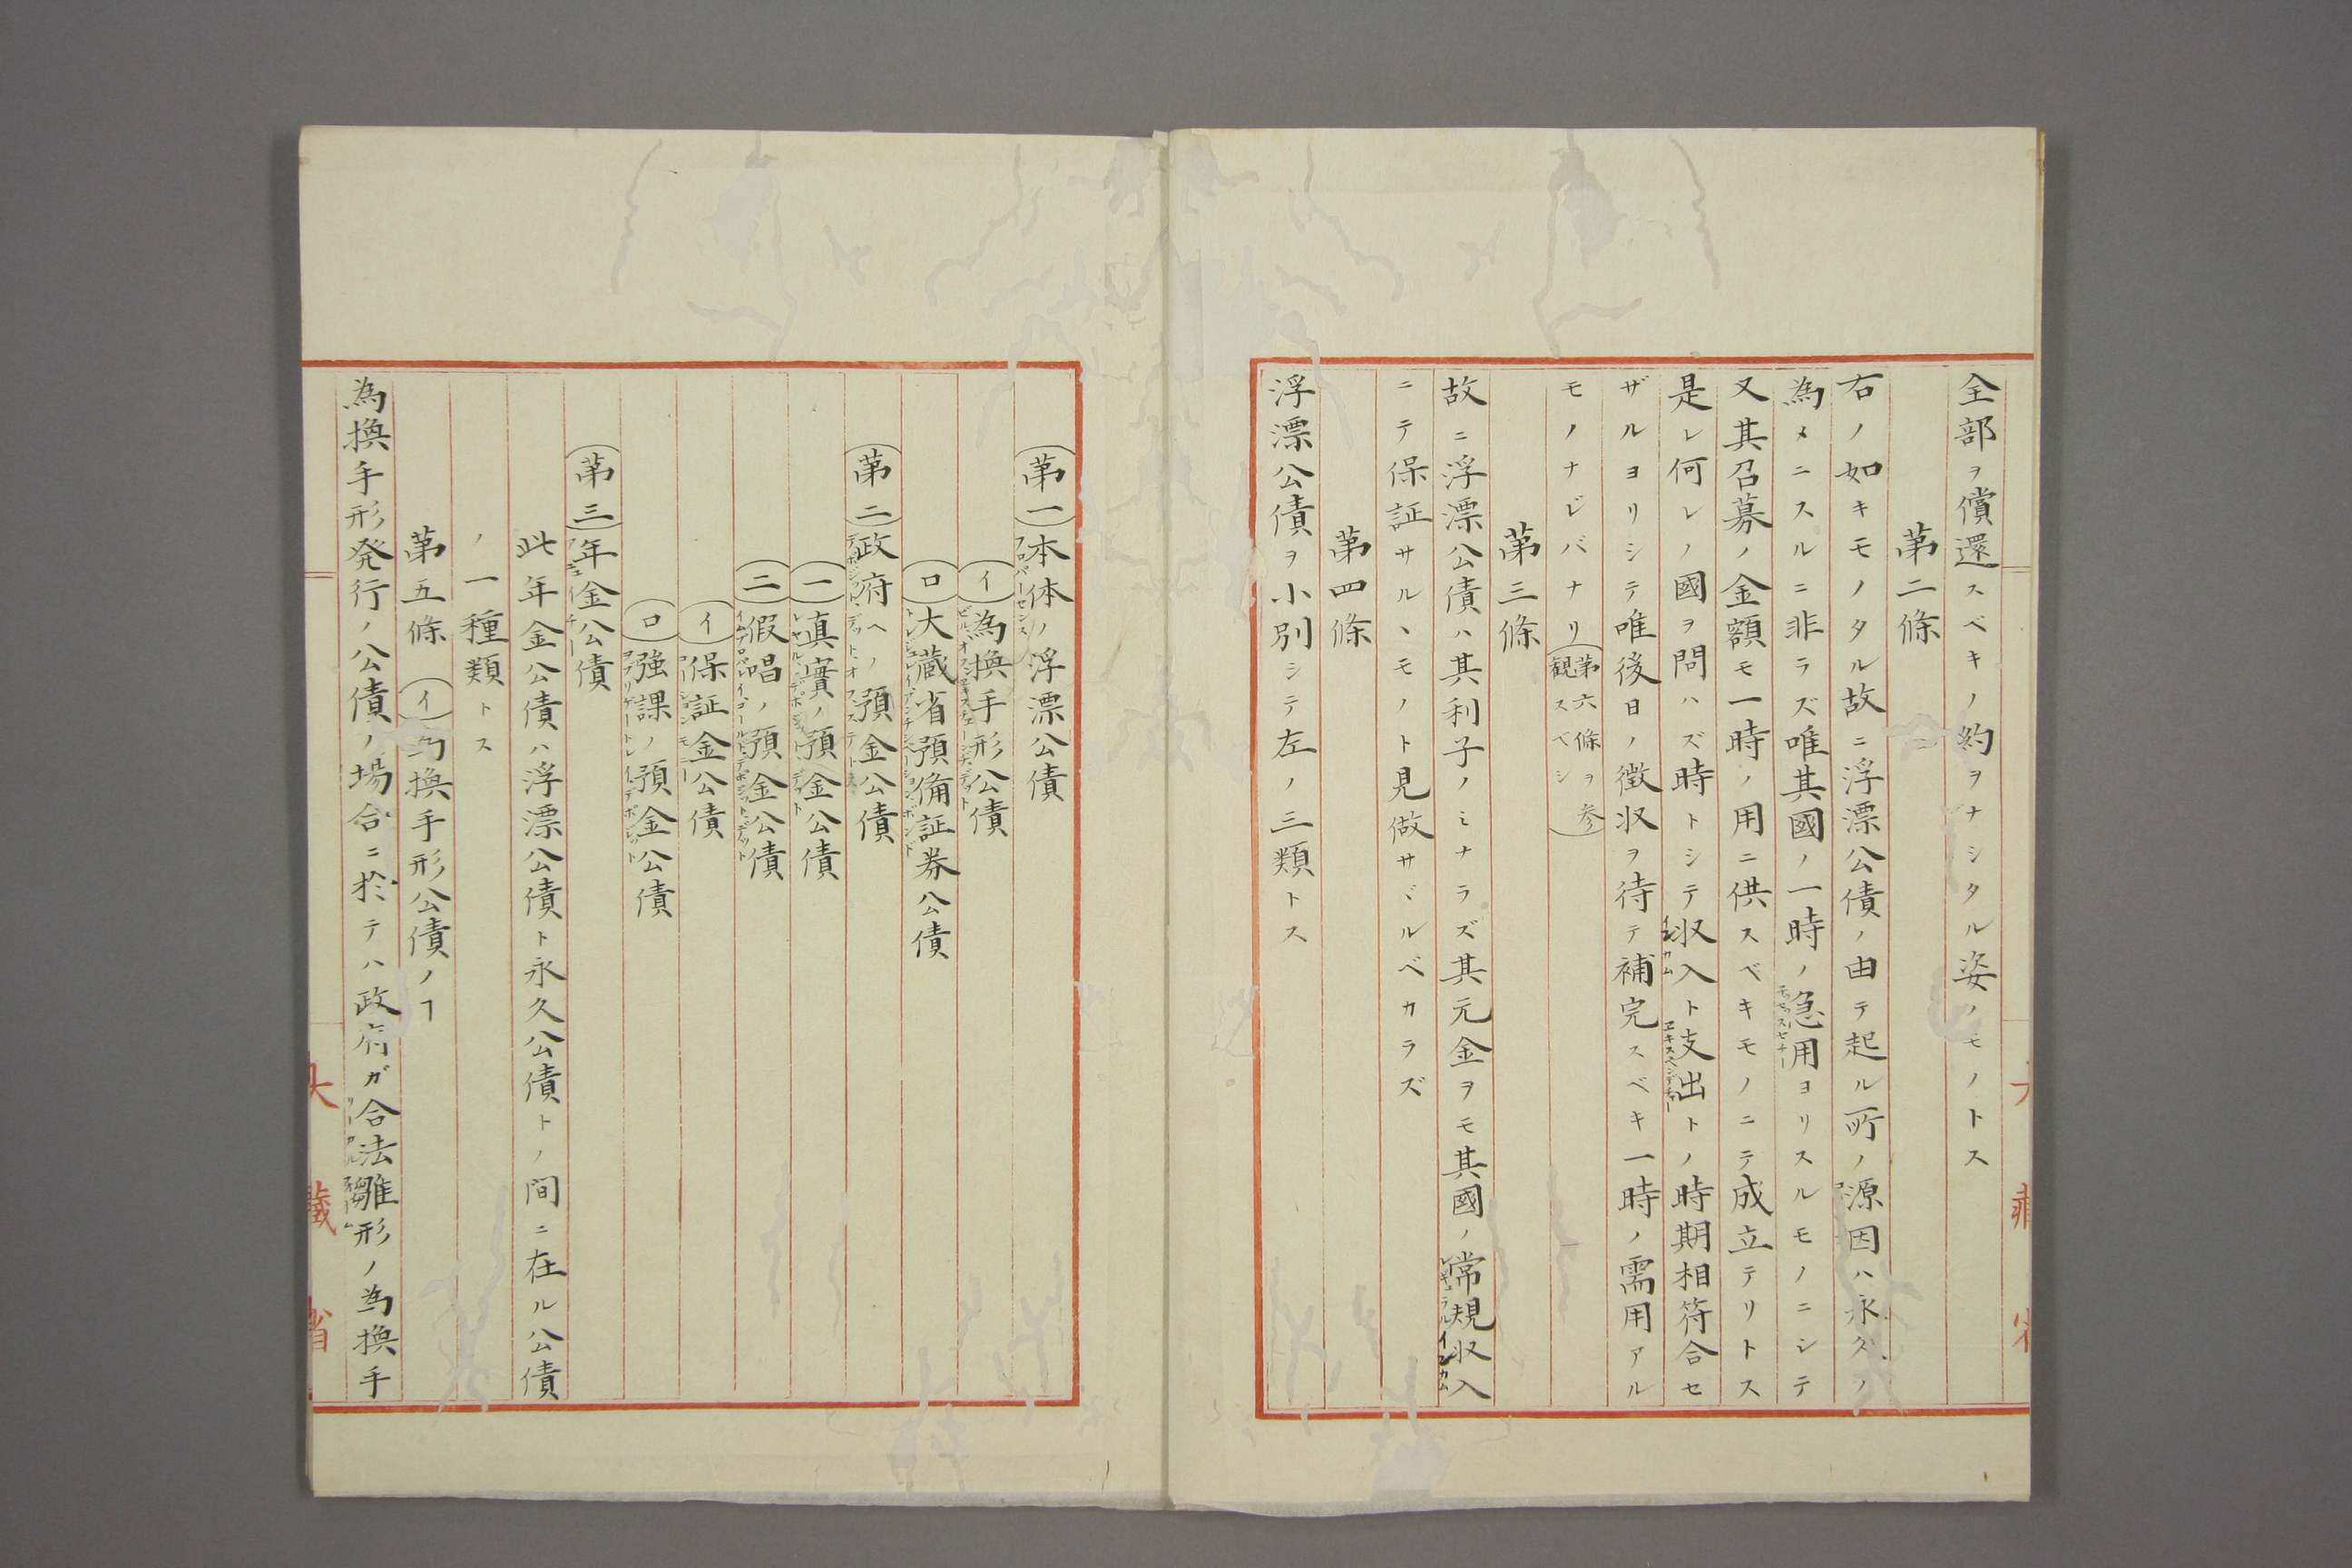 全部ヲ償還スベキノ約ヲナシタル姿ノモノトス
第二條
右ノ如キモノタル故ニ浮漂公債ノ由テ起ル所ノ源因ハ永久ノ
為メニスルニ非ラズ唯其國ノ一時ノ急用ヨリスルモノニシテ
又其召募ノ金額モ一時ノ用ニ供スベキモノニテ成立テリトス
是レ何レノ國ヲ問ハズ時トシテ収入ト支出トノ時期相符合セ
ザルヨリシテ唯後日ノ徴収ヲ待テ補完スベキ一時ノ需用アル
モノナレバナリ(第六條ヲ参観スベシ)
第三條
故ニ浮漂公債ハ其利子ノミナラズ其元金ヲモ其國ノ常規収入
ニテ保証サルヽモノト見做サヾルベカラズ
第四條
浮漂公債ヲ小別シテ左ノ三類トス
(第一)本体ノ浮漂公債
(イ)為換手形公債
(ロ)大蔵省預備証券公債
(第二)政府ヘノ預金公債
(一)真實ノ預金公債
(二)假唱ノ預金公債
(イ)保証金公債
(ロ)強課ノ預金公債
(第三)年金公債
此年金公債ハ浮漂公債ト永久公債トノ間ニ在ル公債
ノ一種類トス
第五條 (イ)為換手形公債ノヿ
為換手形発行ノ公債ノ場合ニ於テハ政府ガ合法雛形ノ為換手
大藏省